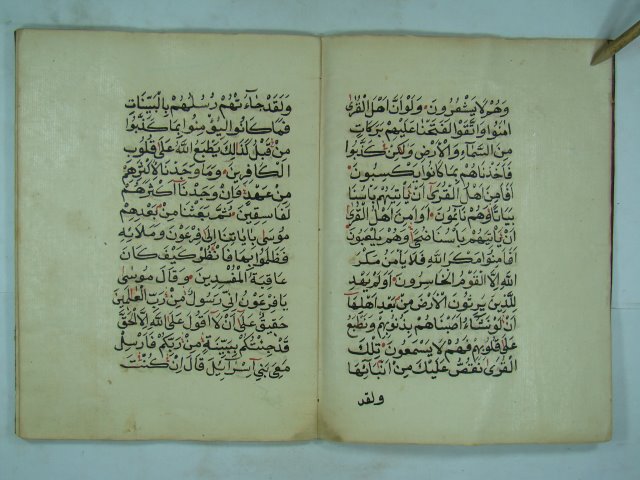 وهم لا يشعرون ولو ان اهل القرى
امنوا واتقوا لفتحنا عليهم بركات
من السماء والارض ولكن كذبوا
فاخذناهم بما كانوا يكسبون
افامن اهل القرى ان ياتيهم باسنا
بياتا وهم نائمون اوامن اهل القرى
ان ياتيهم باسنا ضحى وهم يلعبون
افامنوا مكر الله فلا يامن مكر
الله الا القوم الخاسرون اولم يهد
للذين يرثون الارض من بعد اهلها
ان لو نشاء اصبناهم بذنوبهم ونطبع
على قلوبهم فهم لا يسمعون تلك
القرى نقص عليك من انبائها
ولقد
ولقد جاءتهم رسلهم بالبينات
فما كانوا ليؤمنوا بما كذبوا
من قبل كذلك يطبع الله على قلوب
الكافرين وما وجدنا لاكثرهم
من عهد وان وجدنا اكثرهم
لفاسقين ثم بعثنا من بعدهم
موسى باياتنا الى فرعون وملايه
فظلموا بها فانظر كيف كان
عاقبة المفسدين وقال موسى
يا فرعون انى رسول من رب العالمين
حقيق على ان لا اقول على الله الا الحق
قد جئتكم ببينة من ربكم فارسل
معى بنى اسرائيل قال ان كنت